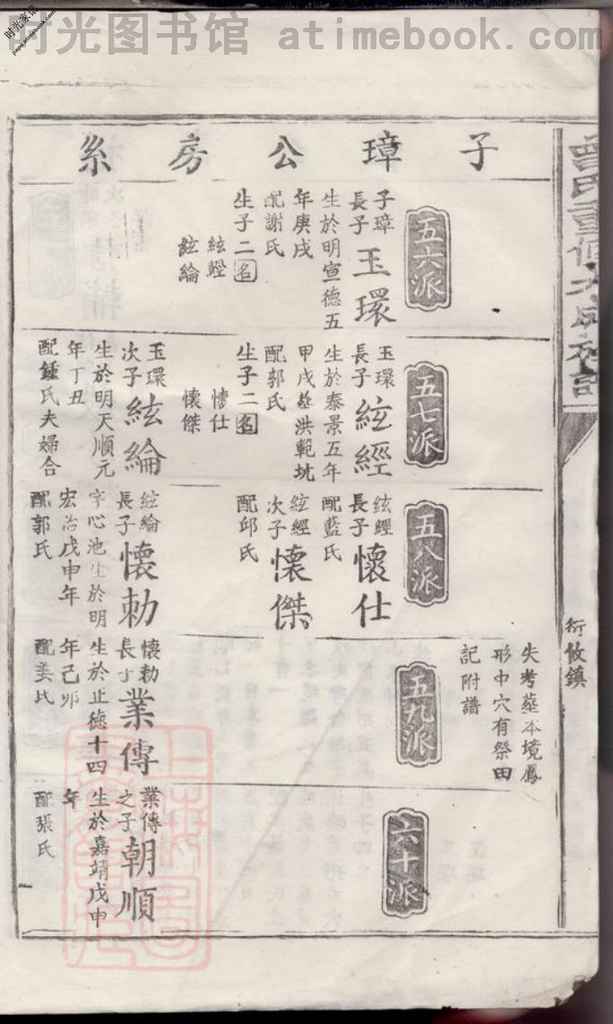 时光图书馆 atimebook.com
子璋公房系
失考塟本境鳳
形中穴有祭田
記附譜
五六派
子璋
長子
玉環
生於明宣德五
年庚戌
配謝氏
生子二名
絃經
絃綸
五七派
玉環
長子
絃經
生於泰景五年
甲戌塟洪範坑
配郭氏
生子二名
懷仕
懷傑
玉環
次子
絃綸
生於明天順元
年丁丑
配鍾氏夫婦合
五八派
絃經
長子
懷仕
配藍氏
絃經
次子
懷傑
配邱氏
絃綸
長子
懷勅
字心池生於明
宏治戊申年
配郭氏
五九派
懷勅
長子
業傳
生於正德十四
年己卯
配姜氏
六十派
業傳
之子
朝順
生於嘉靖戊申
年
配張氏
衍攸鎮